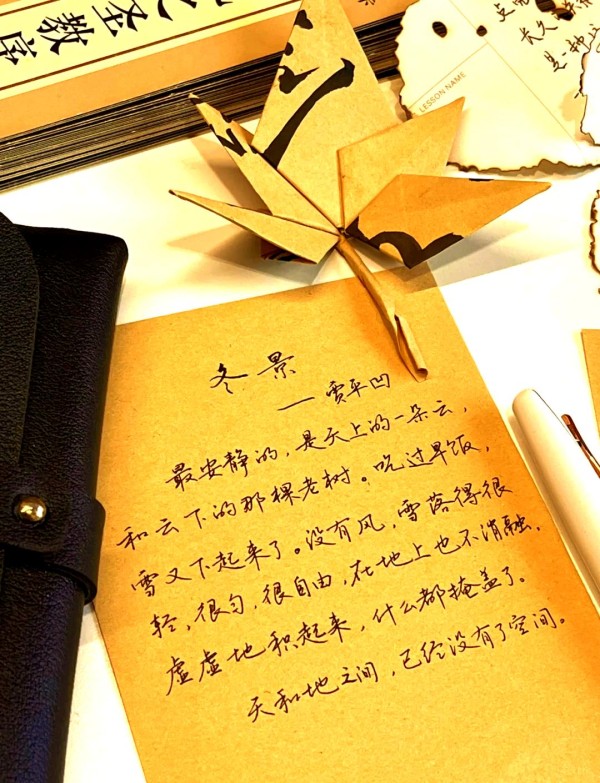 之圣教序
LESSON NAME
冬景
——贾平凹
最安静的，是天上的一朵云，
和云下的那棵老树。吃过早饭，
雪又下起来了。没有风，雪落得很
轻，很匀，很自由，在地上也不消融，
虚虚地积起来，什么都掩盖了。
天和地之间，已经没有了空间。